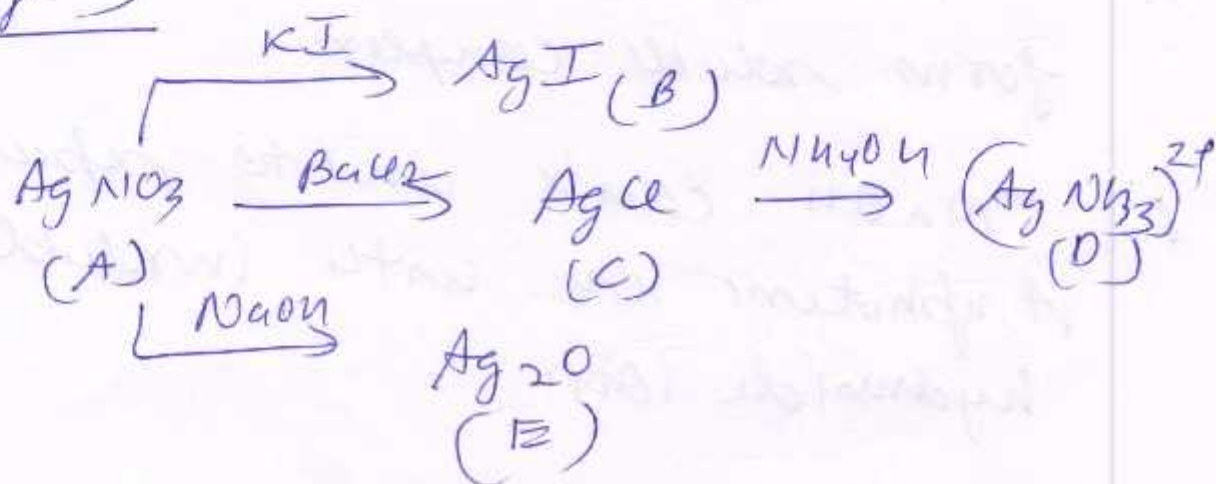 KI
AgI (B)
AgNO3 BaCl2 AgCl NH4OH (AgNH3)2+
(A) (C) (D)
NaOH
Ag2O
(E)